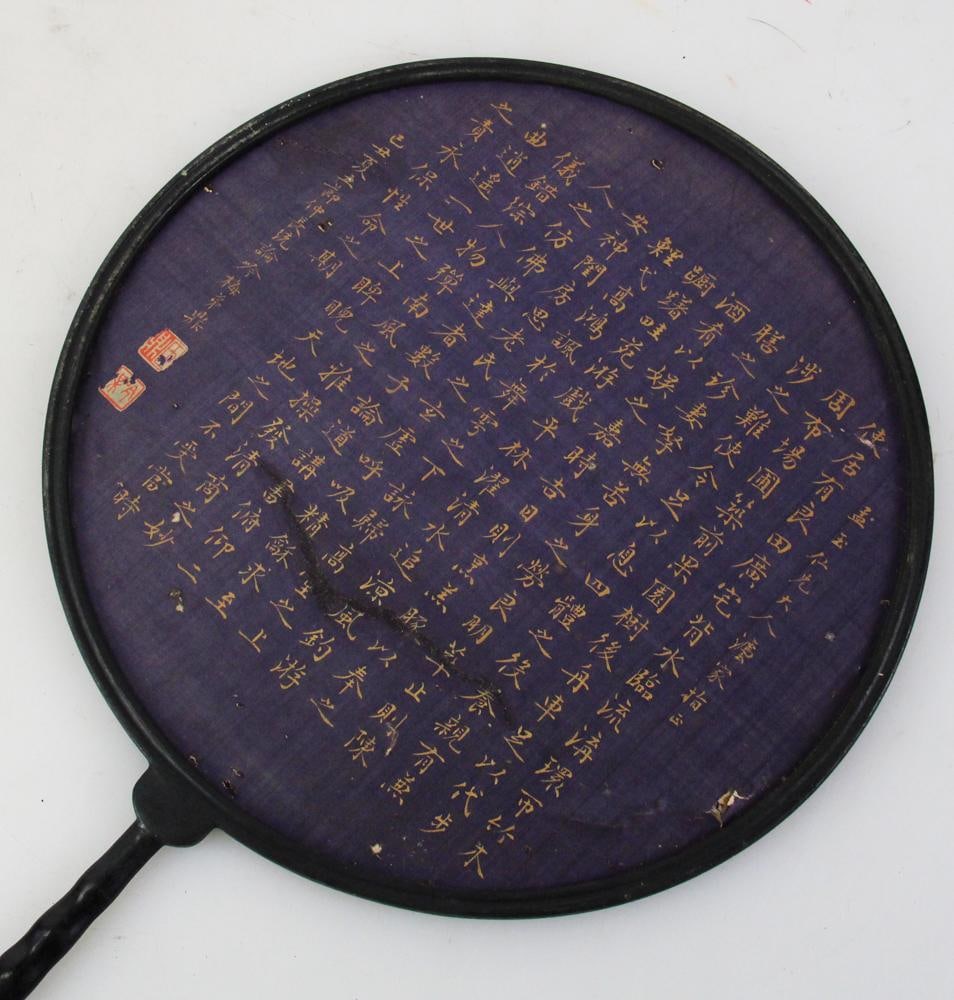 孟玉仁兄大人法家指正
使居有良田廣宅背水臨流溝環帀竹木
周布場圃築前果園樹後舟車足以代步
涉之難使令足以息四體之後養親有兼
膳之珍妻孥無苦身之勞良朋萃止則陳
酒肴以娛之嘉時吉日則烹羔豚以奉之
躕躇畦苑游戲平林濯清水追涼風釣游
鯉弋高鴻諷於舞雩之下詠歸高堂之上
安神閨房思老氏之玄虛呼吸精龢求至
人之仿佛與達者數子論道講書俯仰二
儀錯綜人物彈南風之雅操發清商之妙
曲逍遙一世之上睥睨天地之間不受當時
之責永保性命之期
己丑夏五節仲長統論 梅鼎